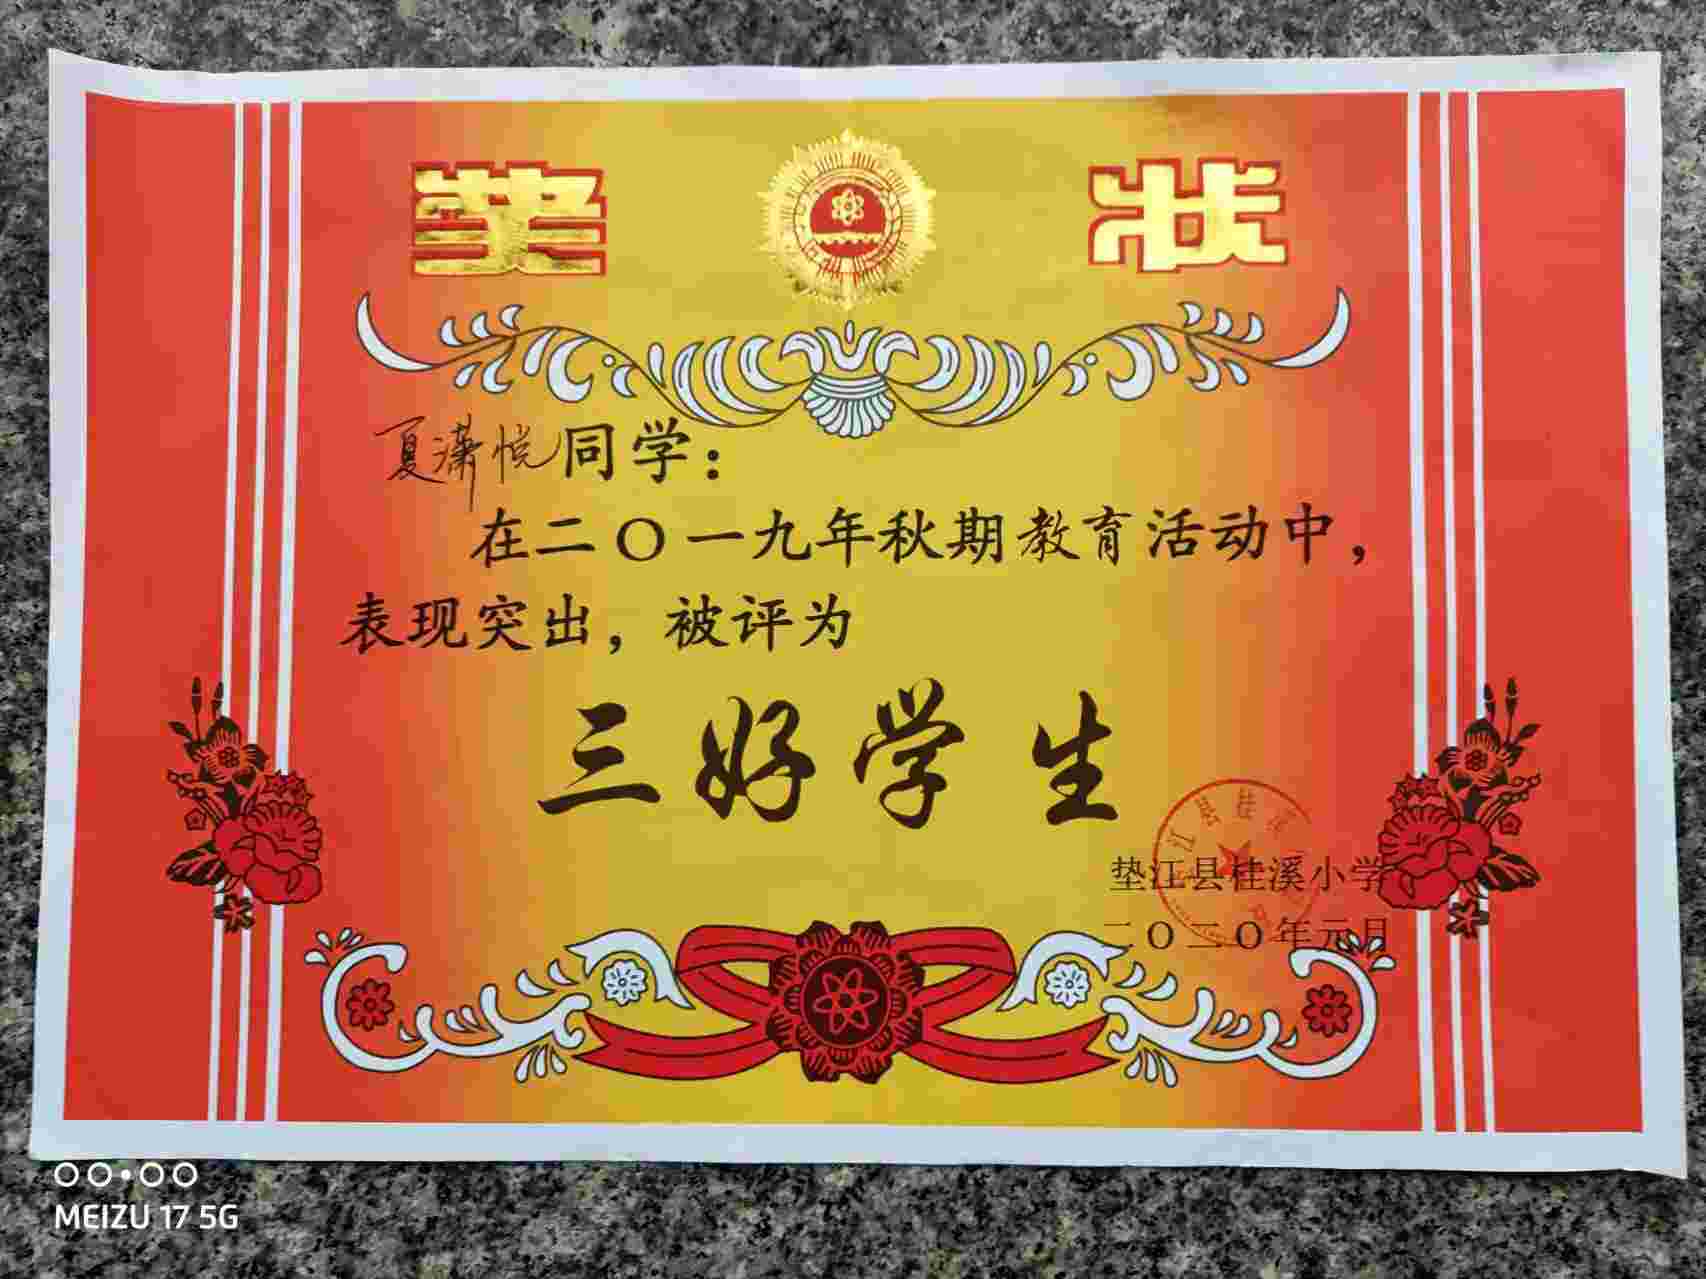 奖 状
夏潇悦同学：
在二〇一九年秋期教育活动中，
表现突出，被评为
三好学生
江县桂溪
垫江县桂溪小学
二〇二〇年元月
MEIZU 17 5G